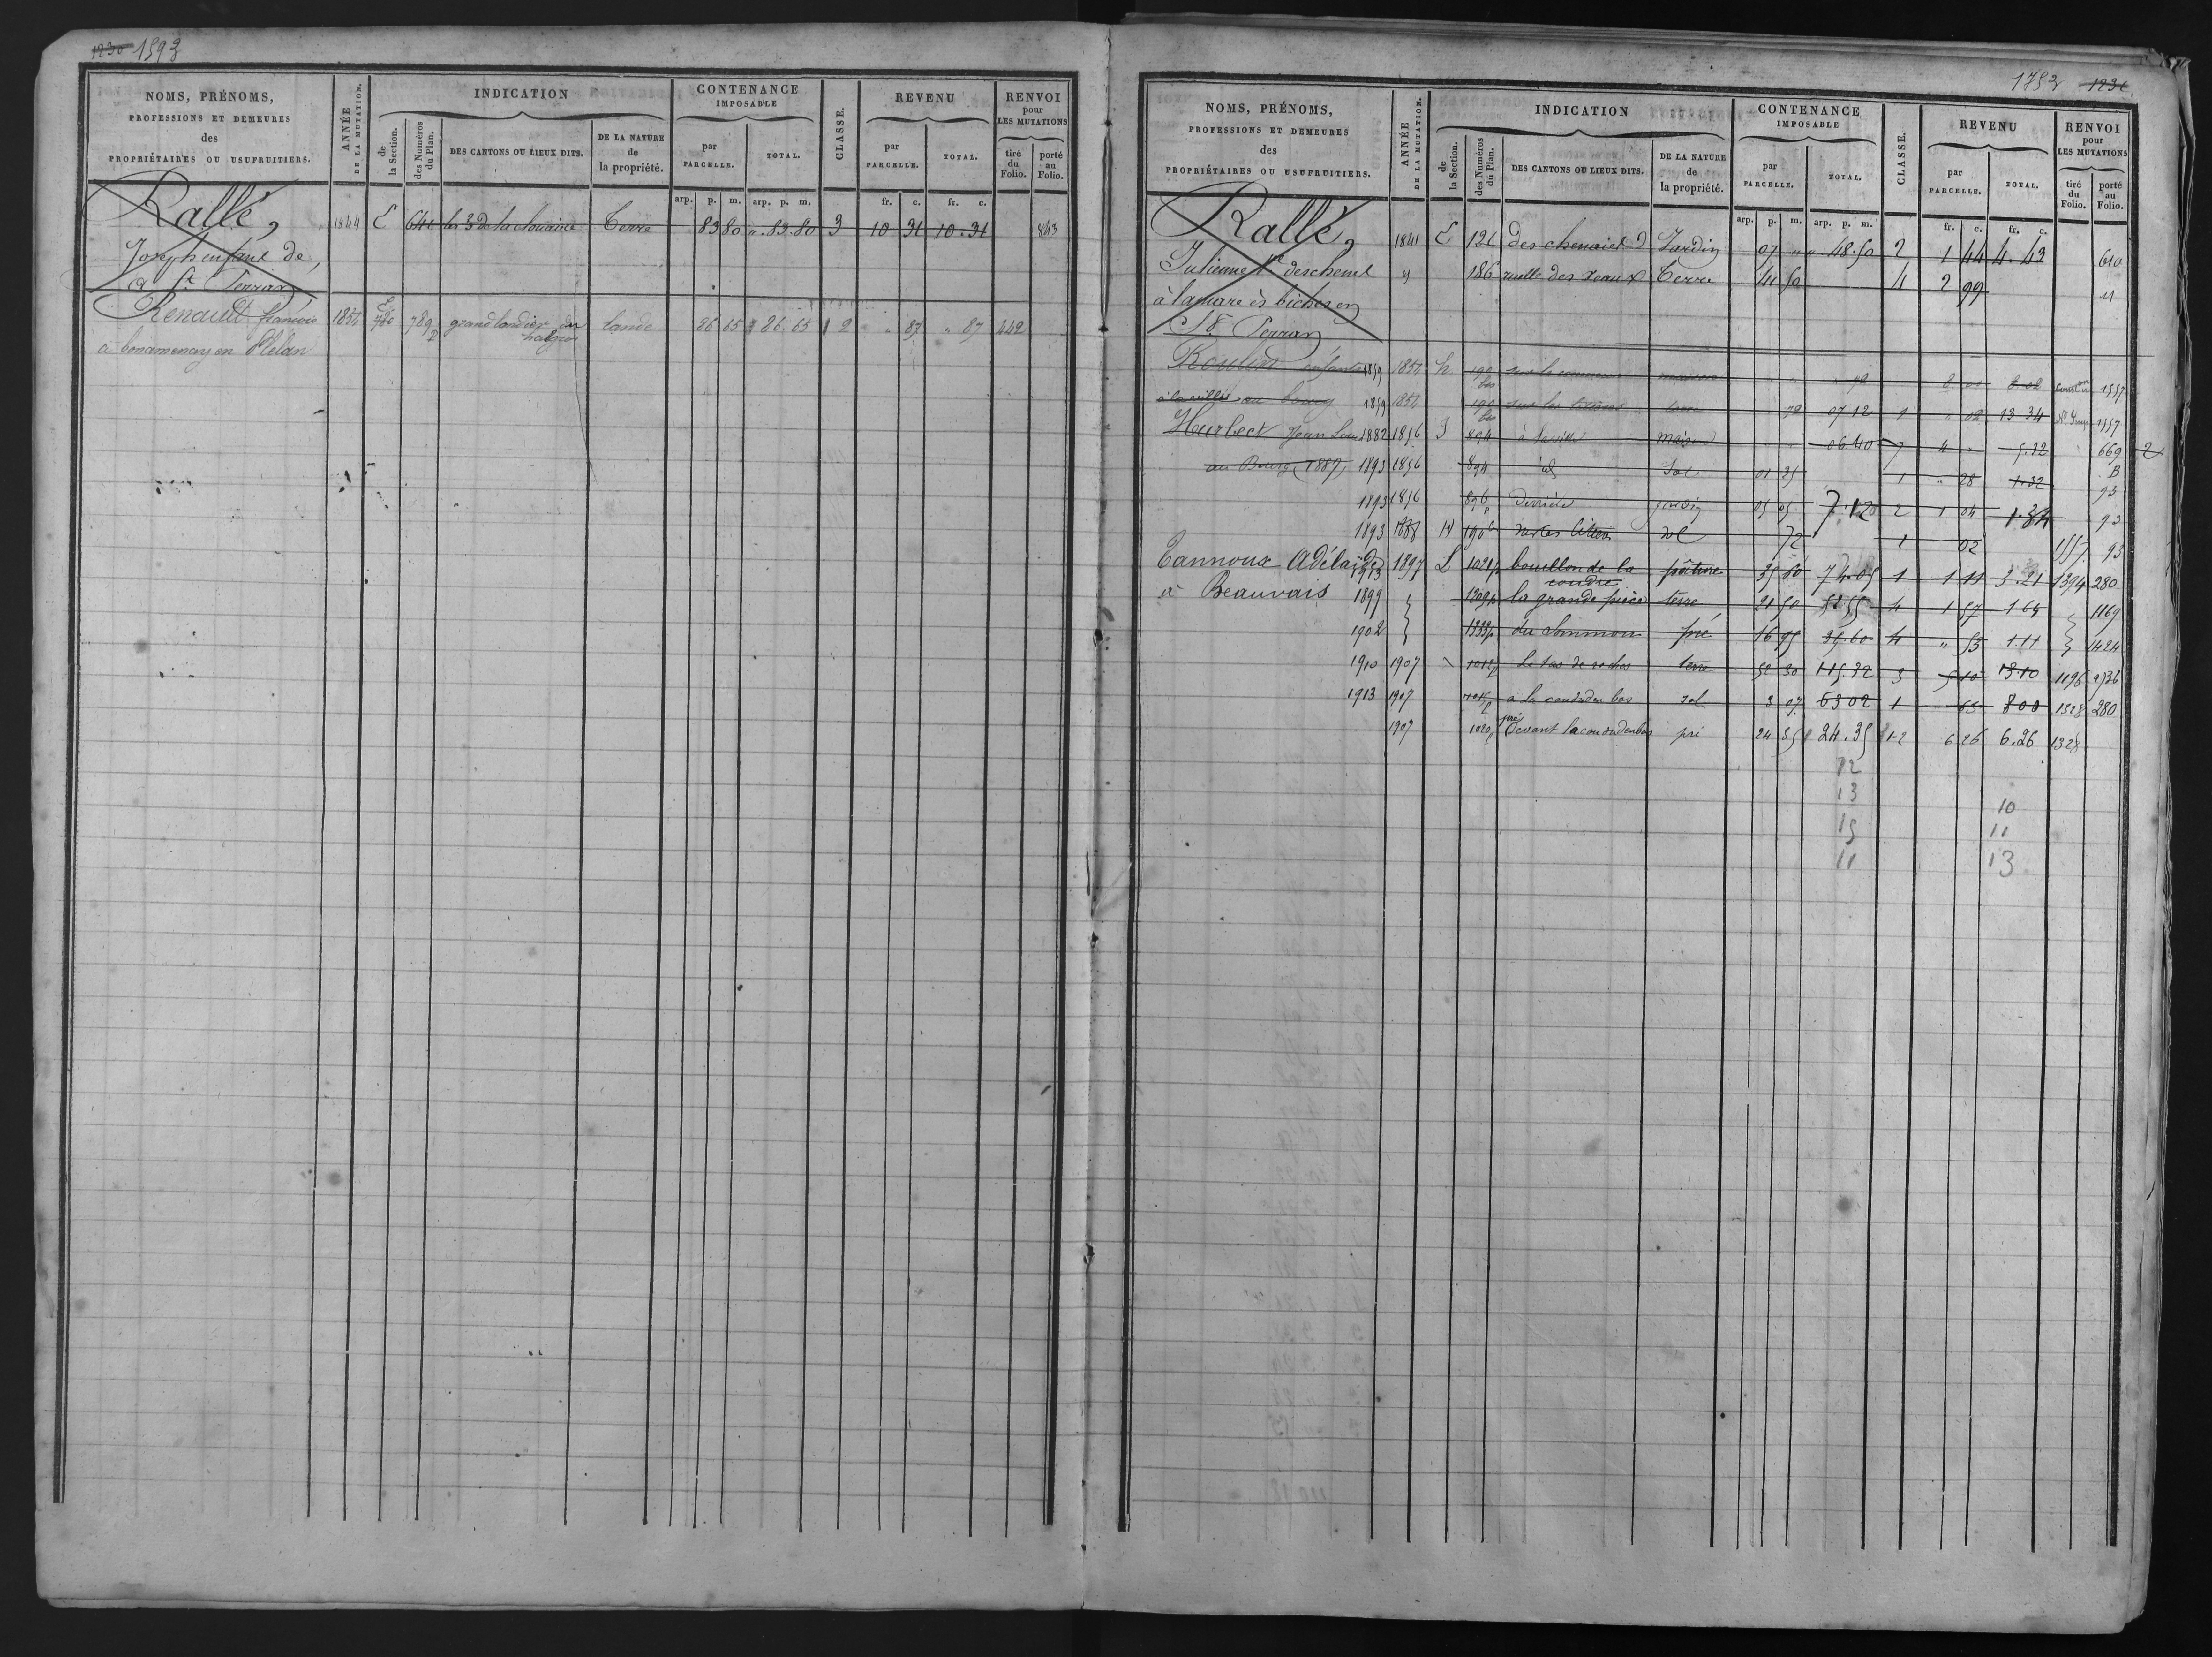 1230 1593
NOMS, PRÉNOMS, PROFESSIONS ET DEMEURES des PROPRIÉTAIRES OU USUFRUITIERS.
ANNÉE DE LA MUTATION.
INDICATION
de la Section.
des Numéros du Plan.
DES CANTONS OU LIEUX DITS.
DE LA NATURE de la propriété.
CONTENANCE IMPOSABLE
par PARCELLE.
TOTAL.
CLASSE.
REVENU
par PARCELLE.
TOTAL.
RENVOI pour LES MUTATIONS
tiré du Folio.
porté au Folio.
arp. p. m. arp. p. m. fr. c. fr. c.
Rallé, 1844 E 641 Terre 83 80 " 83.80 3 10 31 10.31 843
Joseph enfant de,
a St Perran
Renault françois 1854 789 p grand landier du lande 86 65 86 65 2 " 87 " 87 442
a bonamenay en Plélan
1753 1231
NOMS, PRÉNOMS, PROFESSIONS ET DEMEURES des PROPRIÉTAIRES OU USUFRUITIERS.
ANNÉE DE LA MUTATION.
INDICATION
de la Section.
des Numéros du Plan.
DES CANTONS OU LIEUX DITS.
DE LA NATURE de la propriété.
CONTENANCE IMPOSABLE
par PARCELLE.
TOTAL.
CLASSE.
REVENU
par PARCELLE.
TOTAL.
RENVOI pour LES MUTATIONS
tiré du Folio.
porté au Folio.
arp. p. m. arp. p. m. fr. c. fr. c.
Rallé, 1841 E 121 Jardin 07 " " 48.50 2 1 44 4.43 610
Julienne " 186 ruelle des Terre 41 50 4 2 99 "
à la mare ès biches en
St Perran
enfants 1859 1854 h 190 bis 1557
au bourg 1859 1854 190 bis 72 07 12 1 " 02 13 34 1557
Hurbect Jean Louis 1882 1856 894 à la ville maison " 06 40 7 4 " 5.32 669
au Bourg (1887) 1893 1856 894 id Sol 01 35 1 " 28 1.32 93
1893 1856 896 p jardin 05 05 7.12 2 1 04 1.34 93
1893 190 b sol 72 1 02 1557 93
Tannoux Adélaïde 1913 1897 L 1021 p bouillon de la coudre pâture 35 50 74.05 1 1 11 3.21 1394 280
à Beauvais 1899 1209 p la grande pièce terre 21 50 4 1 57 1 64 1169
1902 1333 p du Sommou pré 16 95 39.60 4 " 53 1.11 1424
1910 1907 Le bas de roches terre 52 30 115.32 3 5 10 13.10 1196
1913 1907 a la coudre du bas sol 3 07 63 02 1 63 8 00 1328 280
1907 1020 p Devant la coudre du bas pré 24 35 24.35 1-2 6 26 6.26 1328
12
13 10
15 11
11 13